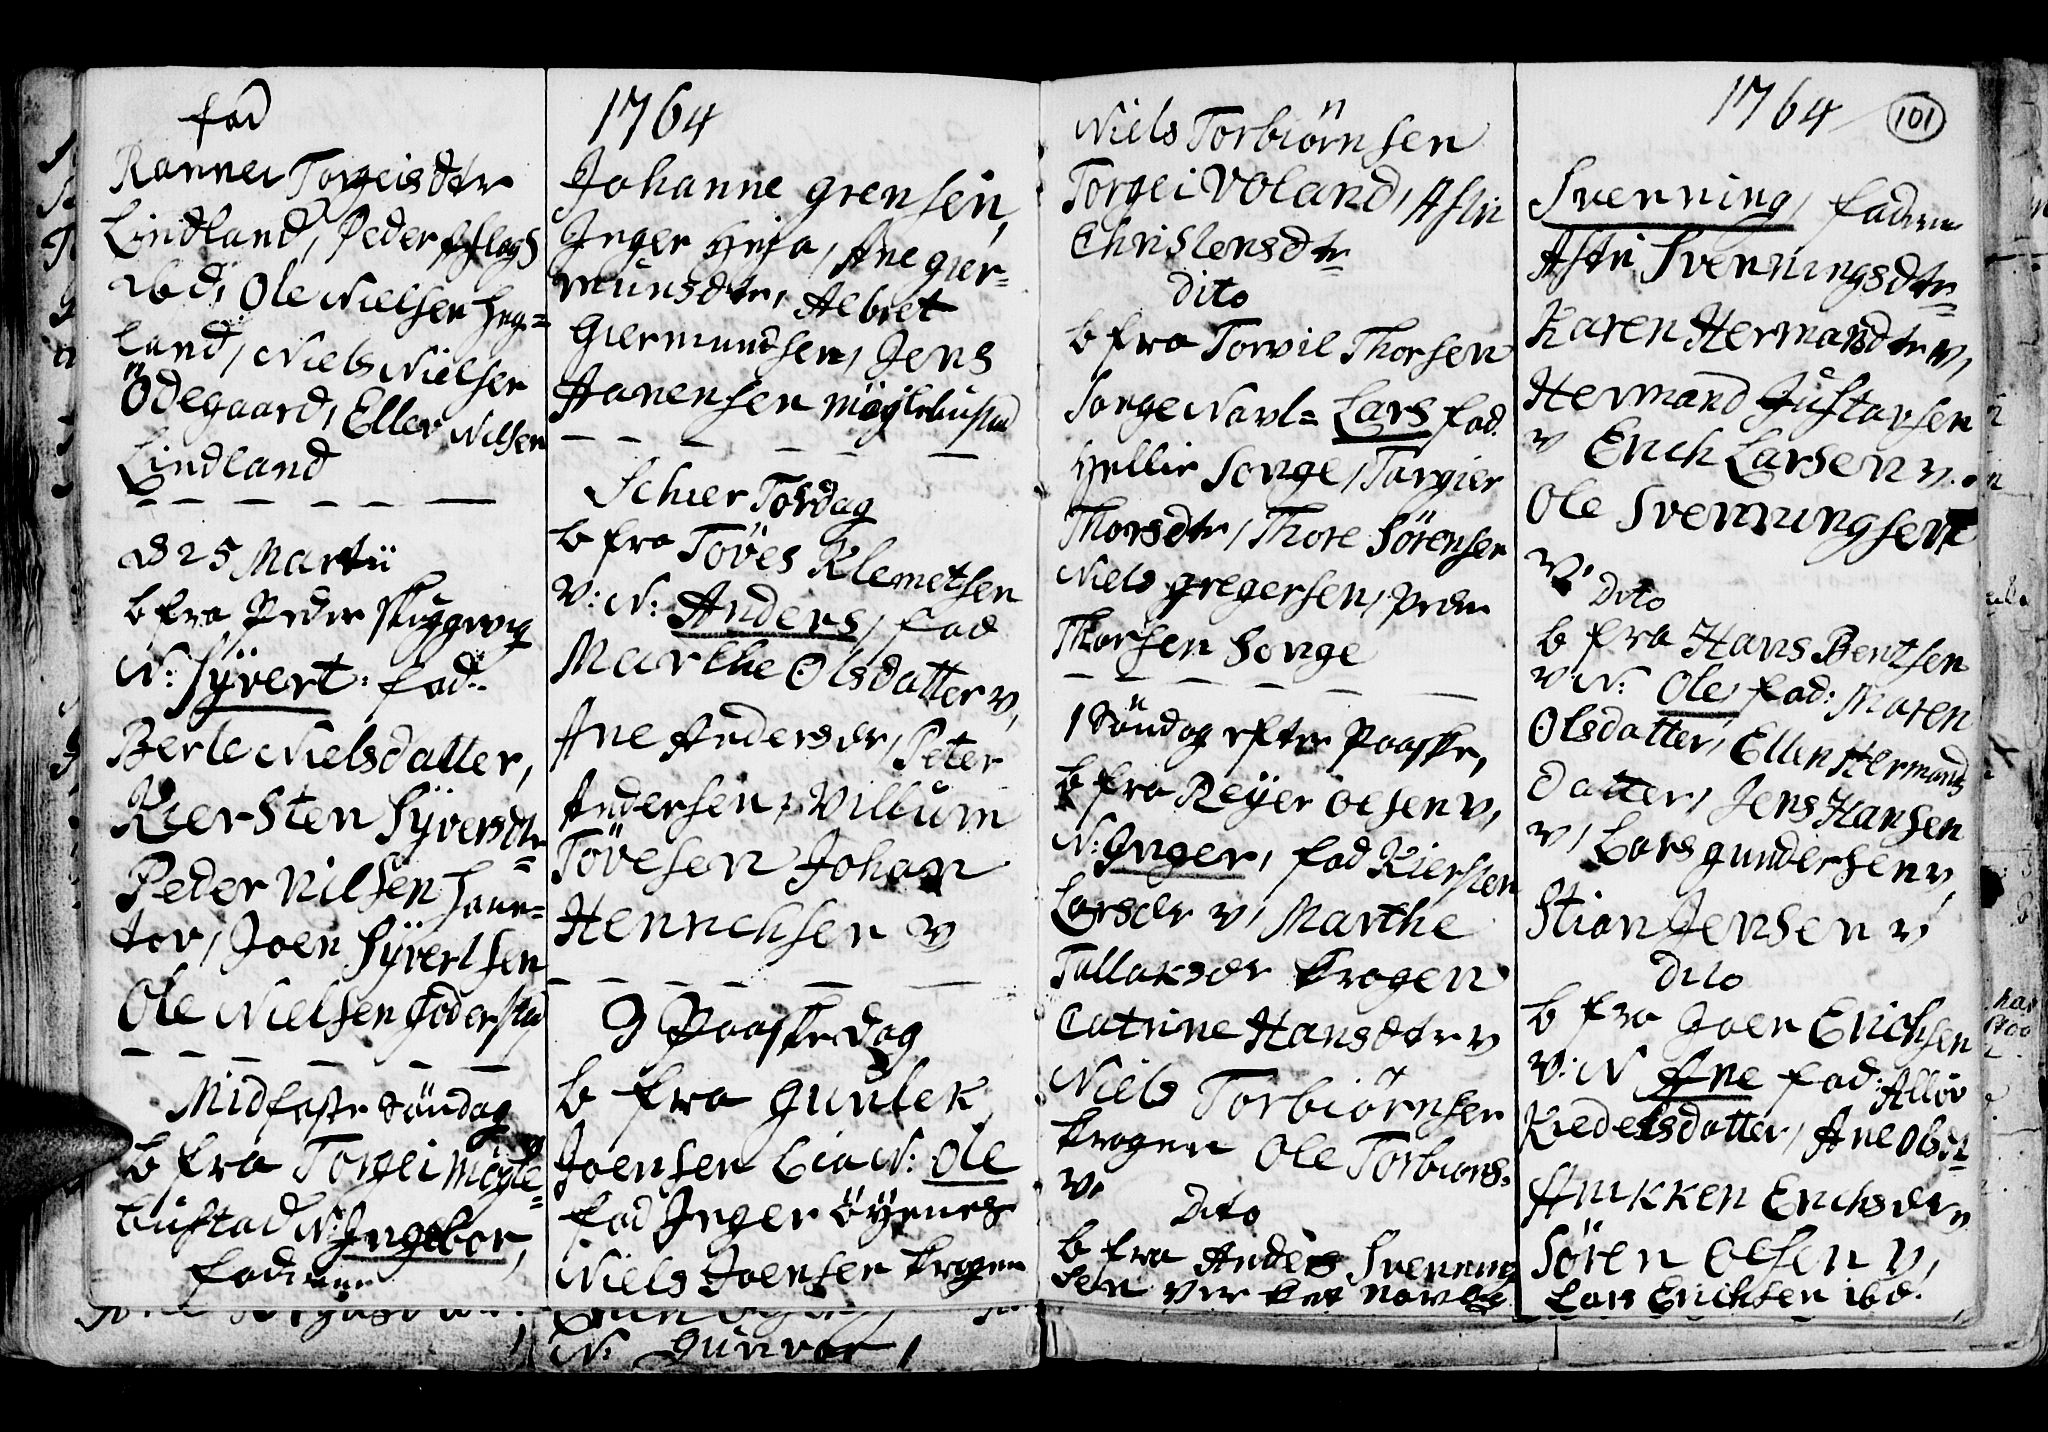 fad
Ranner Torgeisdtr
Lindland, Peder
ibd, Ole Nielsen Heg=
land, Niels Nielsen
Ödegaard, Eller Nilsen
Lindland
d 25 Martii
b fra Peder Skuggevig
N: Syvert. fad.
Berte Nielsdatter,
Kiersten Syversdtr
Peder Nilsen Houe=
tov, Joen Syvertsen
Ole Nielsen Goderstad
Midfaste Söndag
b fra Torgei Mögle=
bustad N: Ingebor,
faderne
1764
Johanne Grensen,
Inger Heja, Ane gier=
munsdtr, Albret
Giermundsen, Jens
Aanensen Möglebustad
Schier Torsdag
b fra Töves Klemetsen
v: N: Anders, fad
Marthe Olsdatter v,
Ane Andersdr, Peter
Andersen, Villum
Tövesen Johan
Henrichsen v
3 Paaskedag
b fra Gunlek
Joensen Lia N: Ole
fad Inger Öyenes
Niels Joensen Krogen
N: Gunvor,
Niels Torbiörnsen
Torgei Voland, Astri
Christensdtr
dito
b fra Torvil Thorsen
Songe Navl= Lars fad.
Hellie Songe, Torgier
Thorsdtr, Thore Sörensen
Niels Gregersen, Peder
Thorsen Songe
1 Söndag efter Paaske,
b fra Reyer Olsen v,
N: Inger, fad Kiersten
Larsdr v, Marthe
Tallaksdr Krogen
Catrine Hansdtr v
Niels Torbiörnsen
Krogen Ole Torbiörns.
v.
Dito
b fra Anders Svenning
sen Verket Navlig
1764
101
Svenning, faderne
Astri Svenningsdtr
Karen Hermansdtr v,
Hermand Gustavsen
v Erich Larsen v.
Ole Svenningsen
v.
Dito
b fra Hans Bentsen
v: N: Ole fad: Maren
Olsdatter, Ellen Hermands
datter, Jens Hansen
v, Lars Gundersen v,
Stian Jensen v
Dito
b fra Joen Erichsen
v: N Ane fad: Allöv
Kiedelsdatter, Ane Olsdt
Anikken Erichsdr v
Sören Olsen v,
Lars Erichsen ibd.